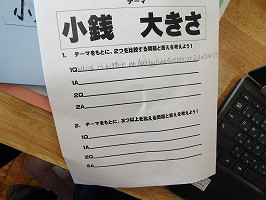 テーマ
小銭 大きさ
1. テーマをもとに、2つを比較する問題と答えを考えよう！
1Q Which is bigger, an Australian
1A
2Q
2A
2. テーマをもとに、3つ以上を比べる問題と答えを考えよう！
1Q
1A
2Q
2A
小